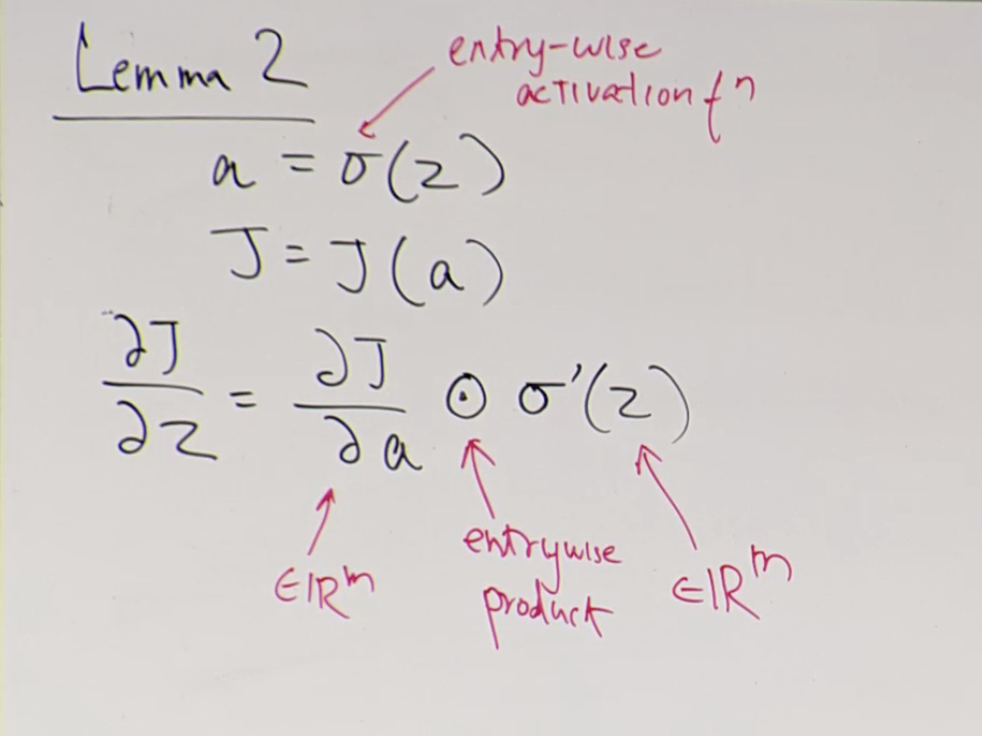 Lemma 2
entry-wise
activation fⁿ
a = σ(z)
J = J(a)
∂J/∂z = ∂J/∂a ⊙ σ'(z)
∈ℝᵐ
entrywise
product
∈ℝᵐ